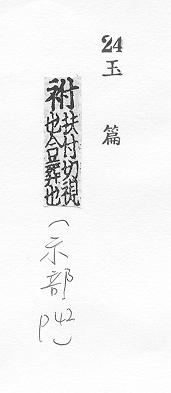 24
玉篇
祔
扶付切視
也合葬也
（示部
p42）